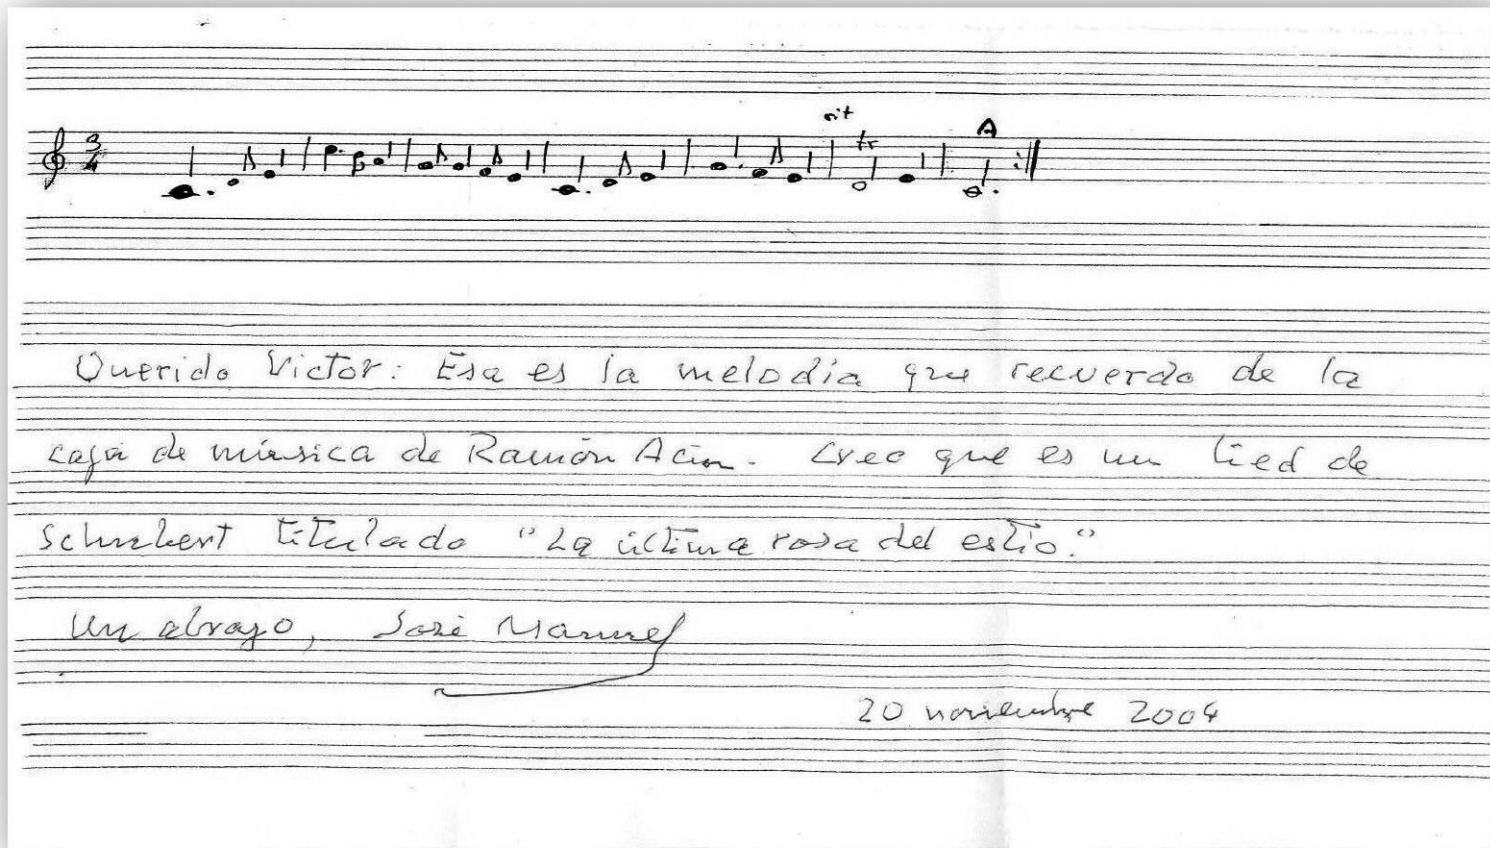 3
4
rit
tr
Querido Victor: Esa es la melodía que recuerdo de la
caja de música de Ramón Acín. Creo que es un lied de
Schubert titulado "La última rosa del estío."
Un abrazo, José Manuel
20 noviembre 2004